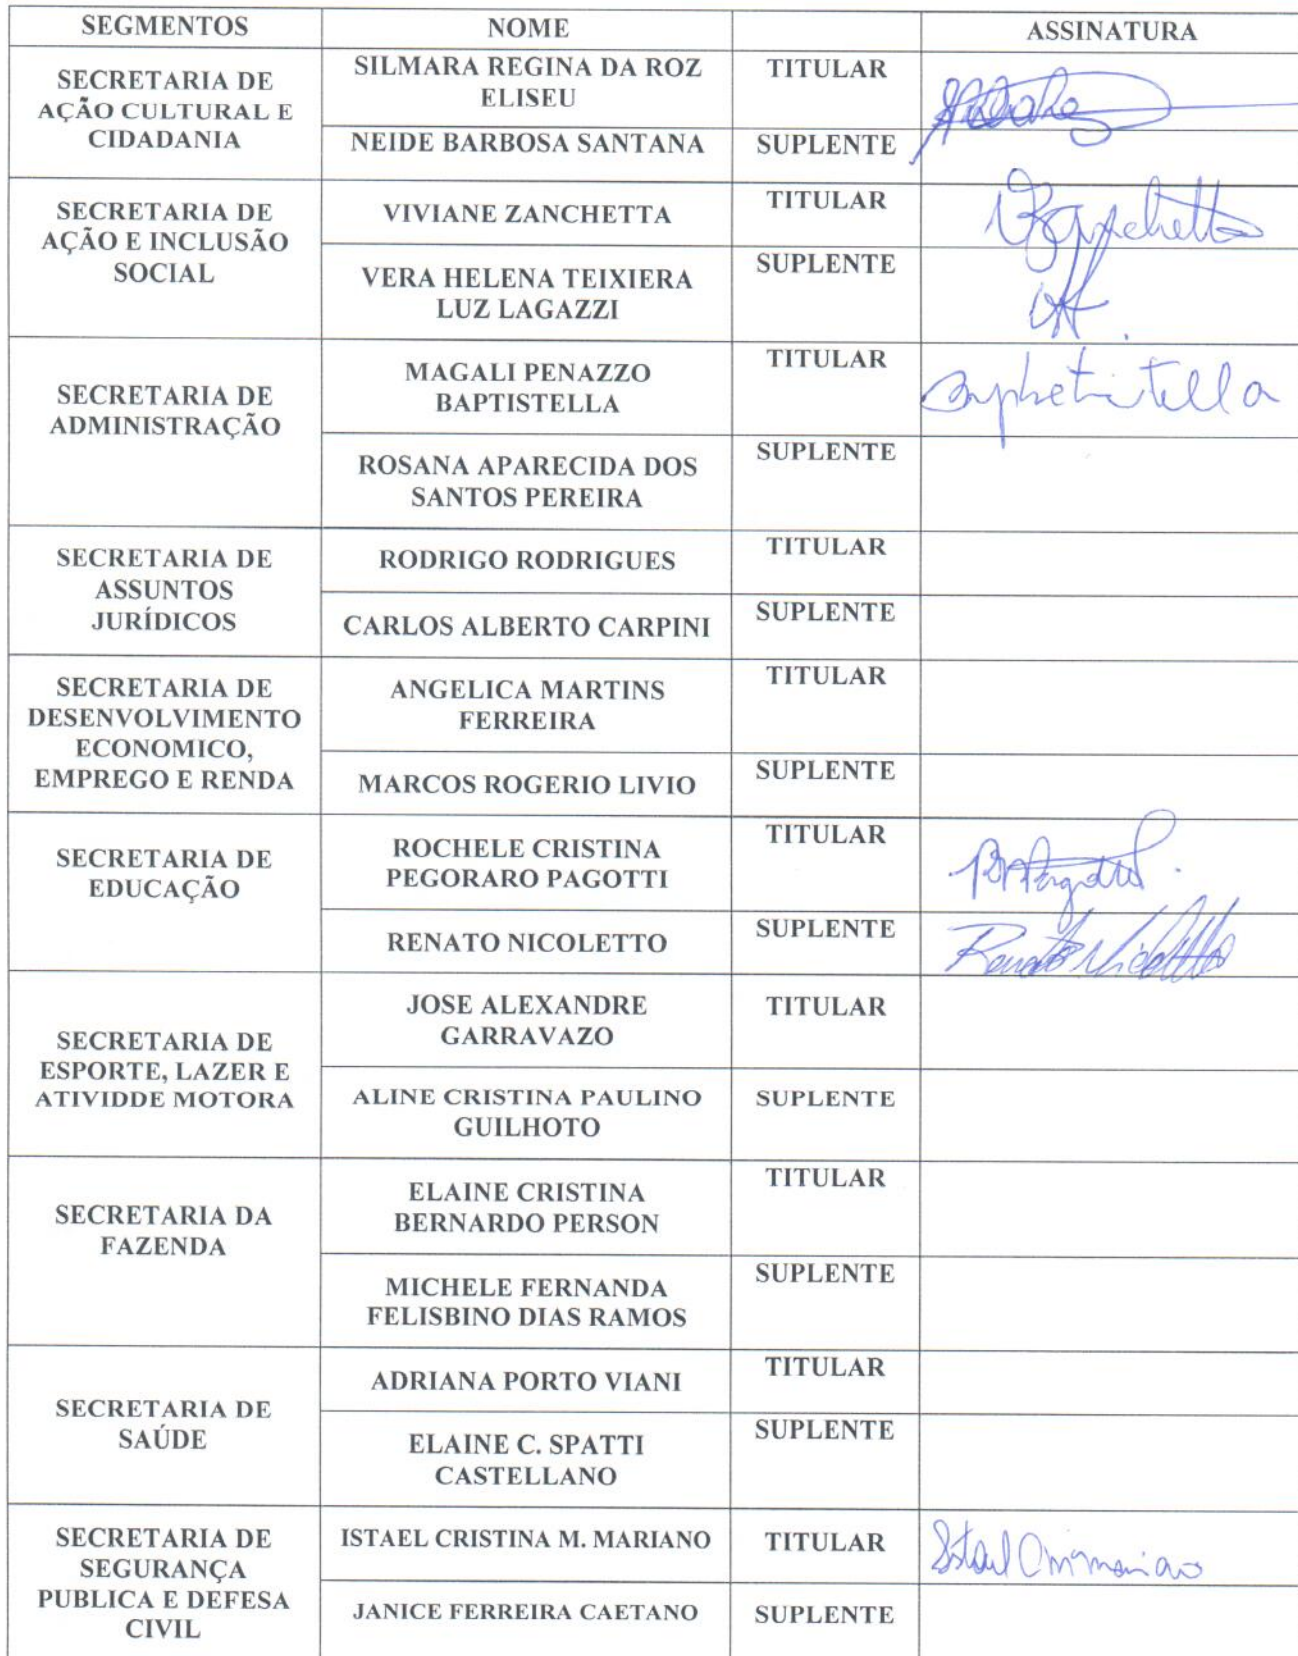 SEGMENTOS NOME ASSINATURA
SECRETARIA DE
AÇÃO CULTURAL E
CIDADANIA
SILMARA REGINA DA ROZ
ELISEU
TITULAR
NEIDE BARBOSA SANTANA
SUPLENTE
SECRETARIA DE
AÇÃO E INCLUSÃO
SOCIAL
VIVIANE ZANCHETTA
TITULAR
VERA HELENA TEIXIERA
LUZ LAGAZZI
SUPLENTE
SECRETARIA DE
ADMINISTRAÇÃO
MAGALI PENAZZO
BAPTISTELLA
TITULAR
ROSANA APARECIDA DOS
SANTOS PEREIRA
SUPLENTE
SECRETARIA DE
ASSUNTOS
JURÍDICOS
RODRIGO RODRIGUES
TITULAR
CARLOS ALBERTO CARPINI
SUPLENTE
SECRETARIA DE
DESENVOLVIMENTO
ECONOMICO,
EMPREGO E RENDA
ANGELICA MARTINS
FERREIRA
TITULAR
MARCOS ROGERIO LIVIO
SUPLENTE
SECRETARIA DE
EDUCAÇÃO
ROCHELE CRISTINA
PEGORARO PAGOTTI
TITULAR
RENATO NICOLETTO
SUPLENTE
Renato Nicoletto
SECRETARIA DE
ESPORTE, LAZER E
ATIVIDDE MOTORA
JOSE ALEXANDRE
GARRAVAZO
TITULAR
ALINE CRISTINA PAULINO
GUILHOTO
SUPLENTE
SECRETARIA DA
FAZENDA
ELAINE CRISTINA
BERNARDO PERSON
TITULAR
MICHELE FERNANDA
FELISBINO DIAS RAMOS
SUPLENTE
SECRETARIA DE
SAÚDE
ADRIANA PORTO VIANI
TITULAR
ELAINE C. SPATTI
CASTELLANO
SUPLENTE
SECRETARIA DE
SEGURANÇA
PUBLICA E DEFESA
CIVIL
ISTAEL CRISTINA M. MARIANO
TITULAR
JANICE FERREIRA CAETANO
SUPLENTE